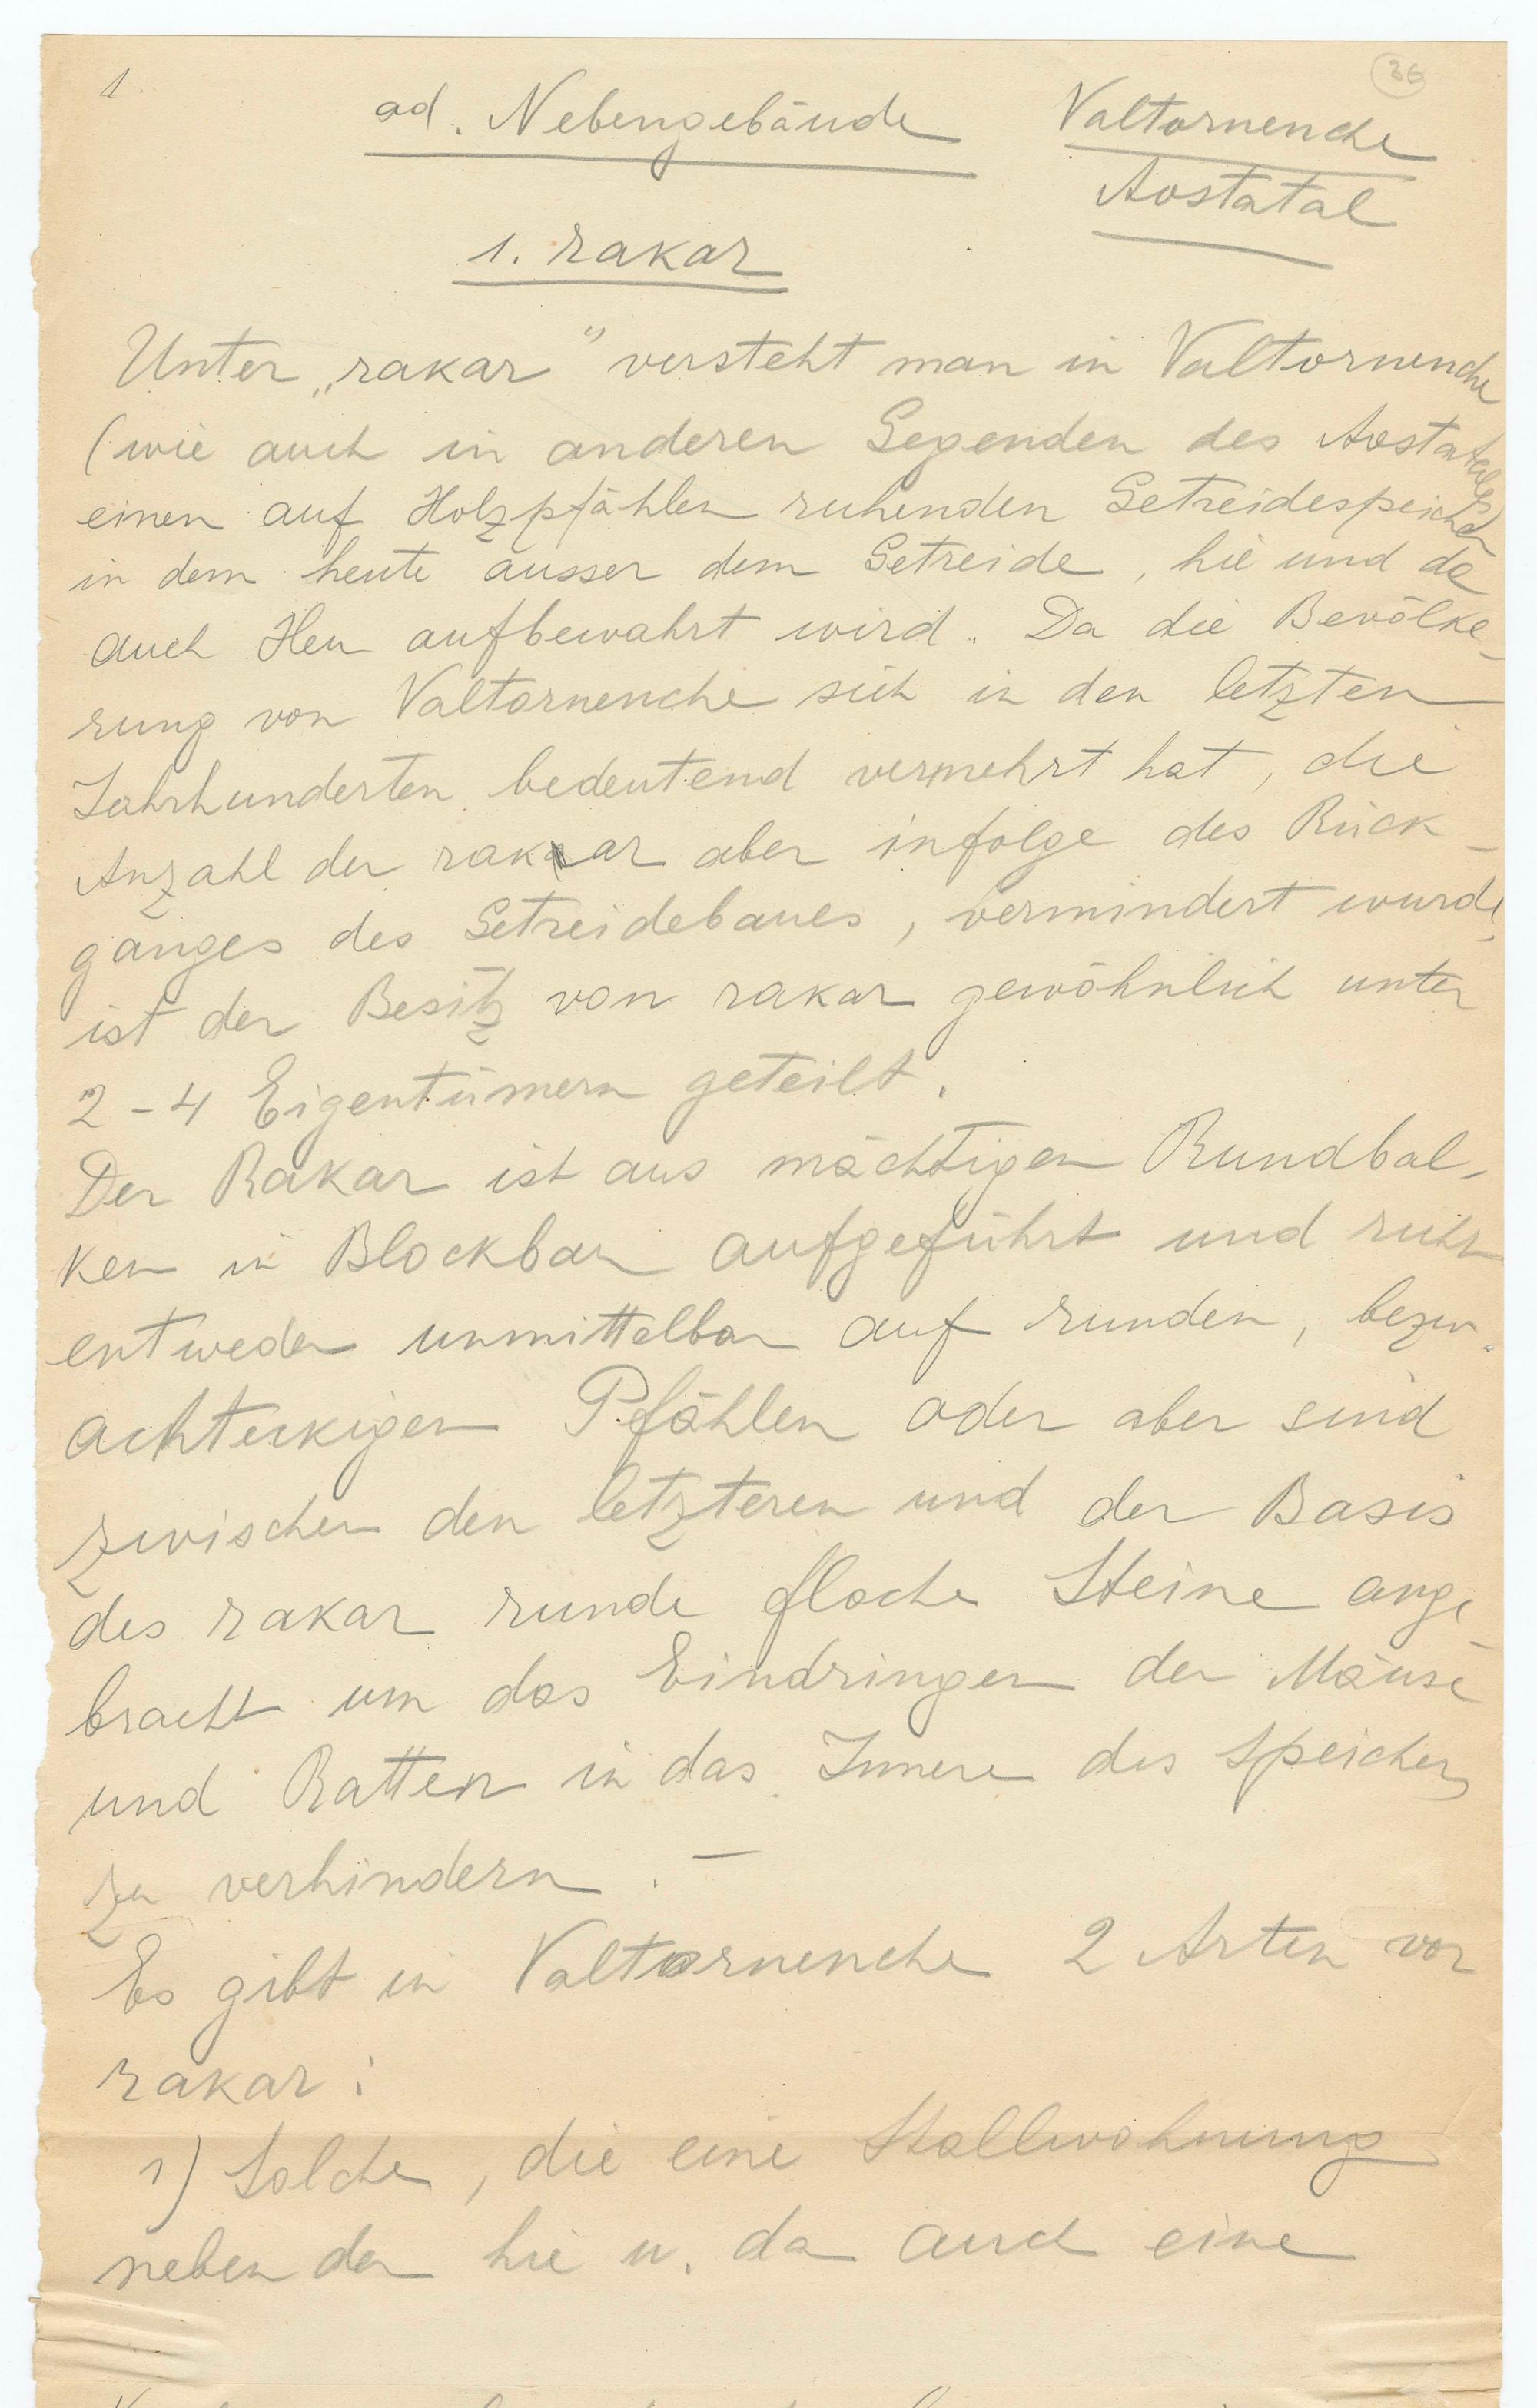 1.
36
ad. Nebengebäude Valtornenche
Aostatal
1. rakar
Unter „rakar" versteht man in Valtornenche
(wie auch in anderen Gegenden des Aostatales)
einen auf Holzpfählen ruhenden Getreidespeicher
in dem heute ausser dem Getreide, hie und da
auch Heu aufbewahrt wird. Da die Bevölke-
rung von Valtornenche sich in den letzten
Jahrhunderten bedeutend vermehrt hat, die
Anzahl der rakar aber infolge des Rück-
ganges des Getreidebaues, vermindert wurde,
ist der Besitz von rakar gewöhnlich unter
2-4 Eigentümern geteilt.
Der Rakar ist aus mächtigen Rundbal-
ken in Blockbau aufgeführt und ruht
entweder unmittelbar auf runden, bezw.
achteckigen Pfählen oder aber sind
zwischen den letzteren und der Basis
des rakar runde flache Steine ange-
bracht um das Eindringen der Mäuse
und Ratten in das Innere des Speichers
zu verhindern. —
Es gibt in Valtornenche 2 Arten von
rakar:
1) Solche, die eine Stallwohnung
neben der hie u. da auch eine